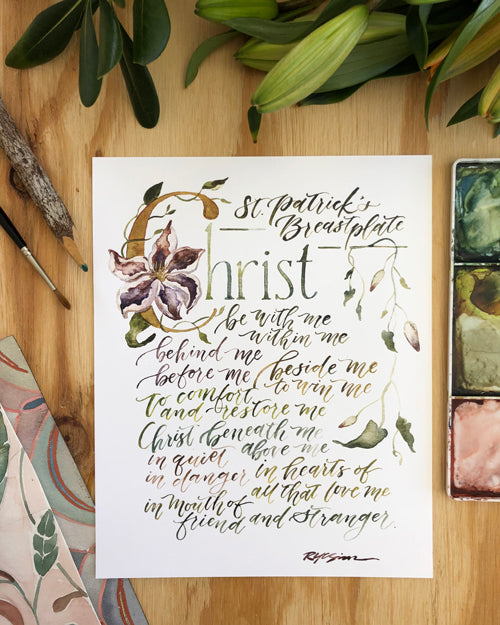 St. Patrick's
Breastplate
Christ
be with me
within me
behind me
before me beside me
to comfort to win me
and restore me
Christ beneath me
above me
in quiet
in danger in hearts of
all that love me
in mouth of
friend and stranger.